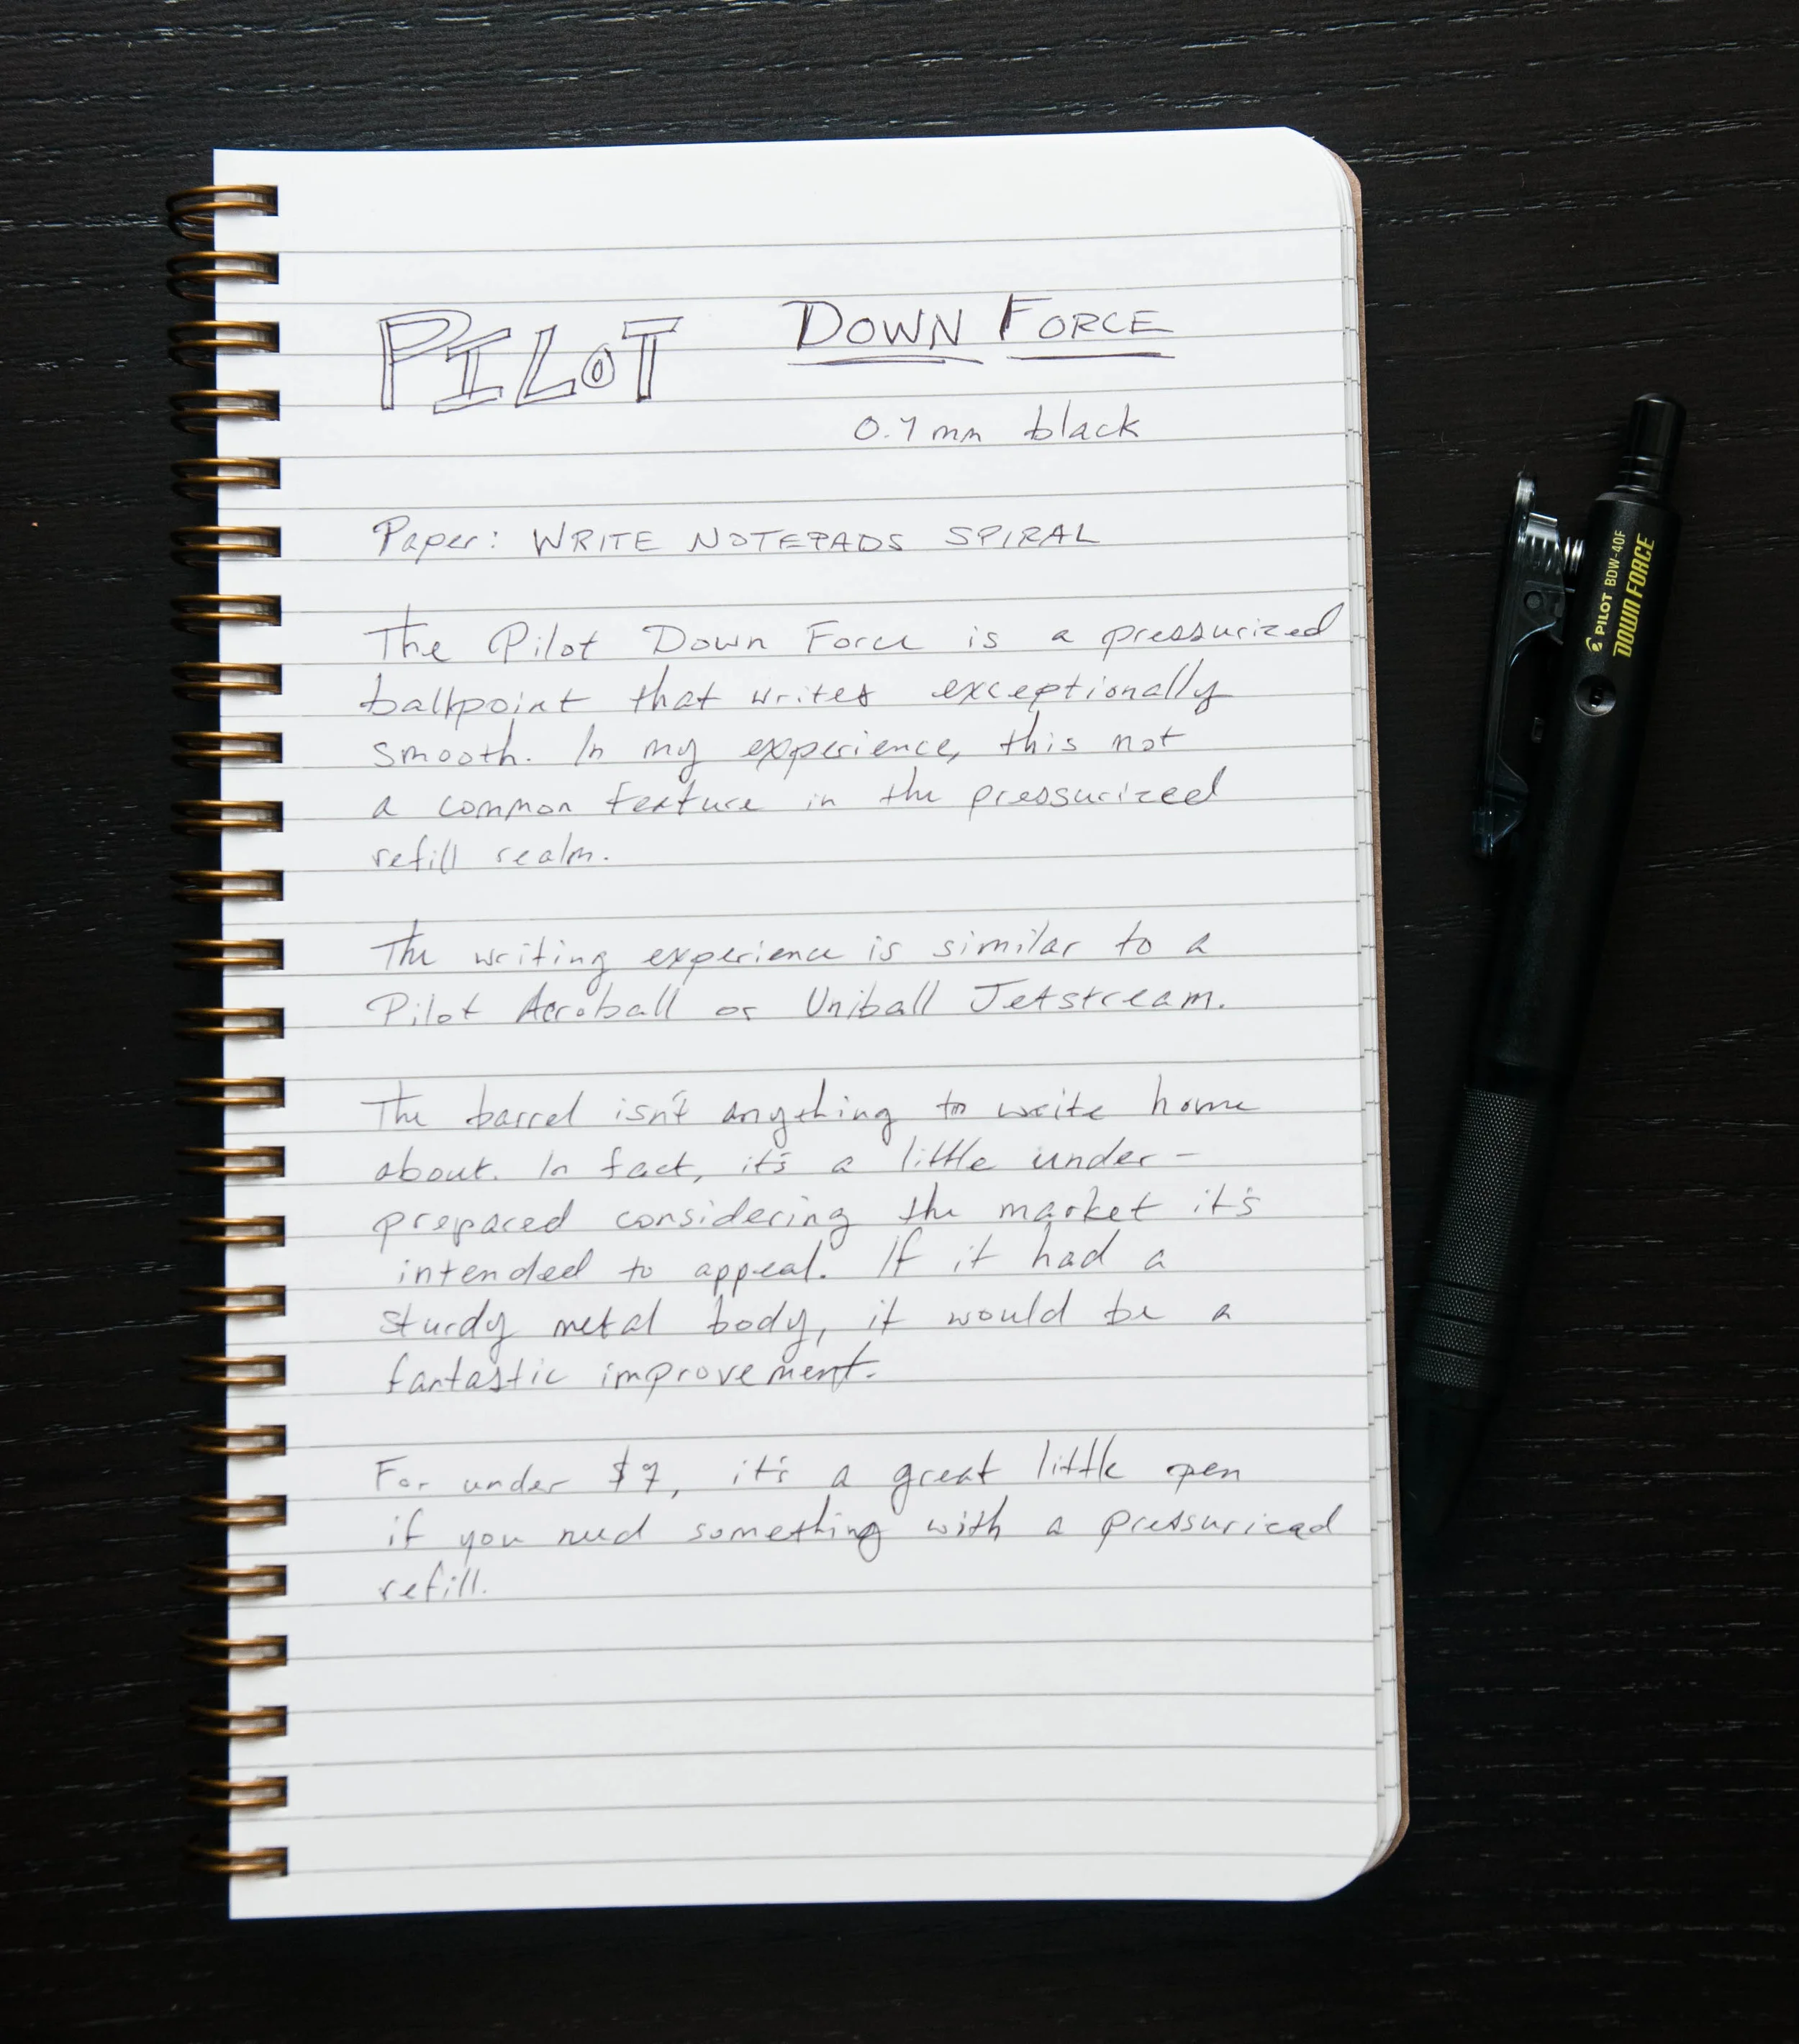 PILOT DOWN FORCE
0.7mm black
Paper: WRITE NOTEPADS SPIRAL
The Pilot Down Force is a pressurized
ballpoint that writes exceptionally
smooth. In my experience, this not
a common feature in the pressurized
refill realm.
The writing experience is similar to a
Pilot Acroball or Uniball Jetstream.
The barrel isn't anything to write home
about. In fact, it's a little under-
prepared considering the market it's
intended to appeal. If it had a
sturdy metal body, it would be a
fantastic improvement.
For under $7, it's a great little pen
if you need something with a pressurized
refill.
PILOT BDW-40F
DOWN FORCE